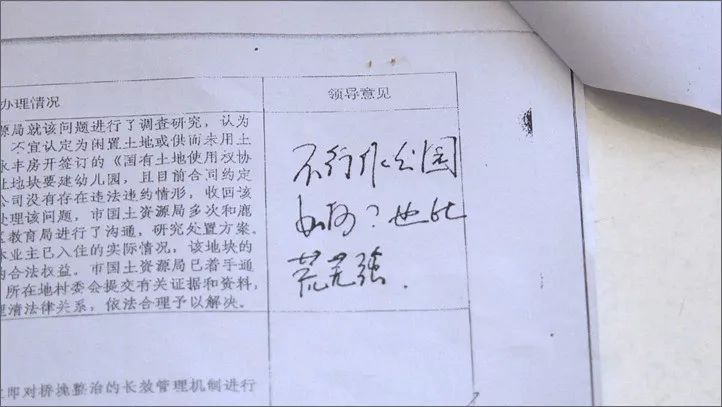 办理情况
领导意见
源局就该问题进行了调查研究，认为
不宜认定为闲置土地或供而未用土
永丰房开签订的《国有土地使用权协
让地块要建幼儿园，且目前合同约定
公司没有存在违法违约情形，收回该
处理该问题，市国土资源局多次和鹿
区教育局进行了沟通，研究处置方案。
本业主已入住的实际情况，该地块的
的合法权益。市国土资源局已着手通
所在地村委会提交有关证据和资料，
理清法律关系，依法合理予以解决。
不行作公园
如何？也比
荒芜强．
立即对桥堍整治的长效管理机制进行